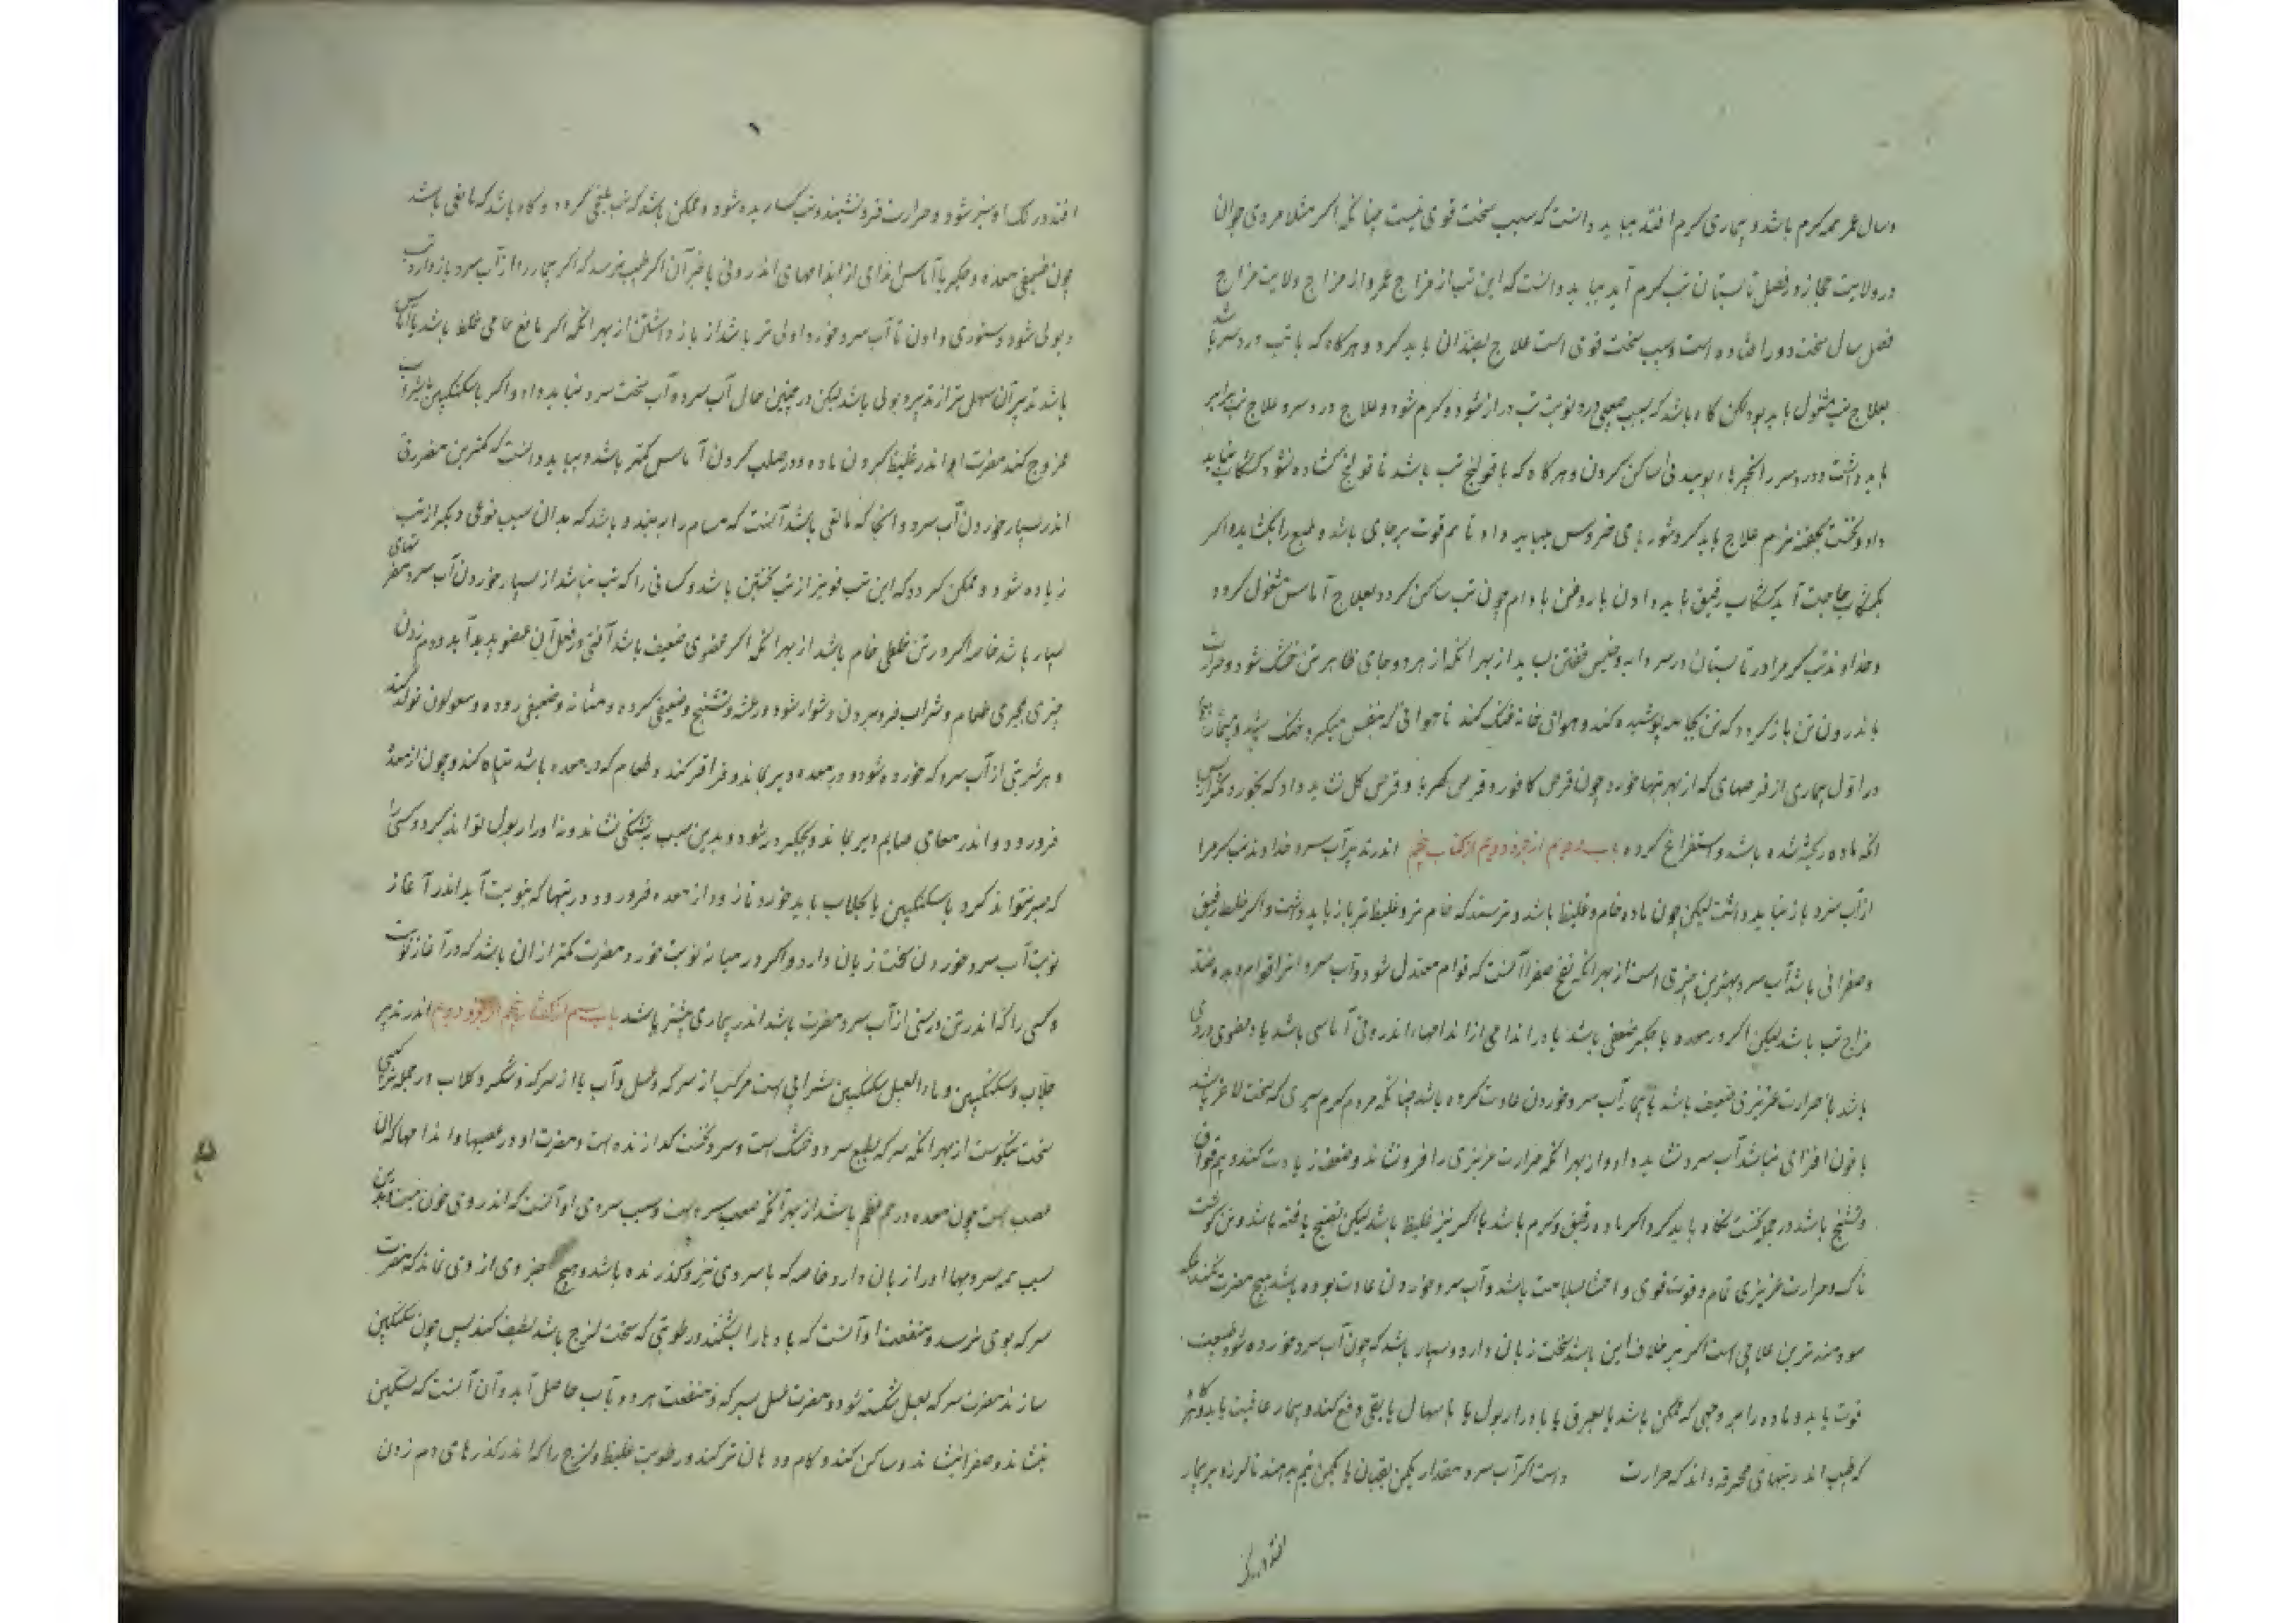 وسال عمر همه کرم باشد و بیماری کرم افتد بباید دانست که سبب سخت قوی نیست چنانکه اکر مثلا مردی جوان
در ولایت حجاز و فصل تابستان تب کرم آید بباید دانست که این تب از مزاج عمر و از مزاج ولایت مزاج
فصل سال سخت دور افتاده است و سبب سخت قوی است علاج بقدر آن باید کرد و هرکاه که با تب درد سر باشد
بعلاج تب مشغول باید بود لکن کاه باشد که بسبب درد نوبت تب دراز شود و کرم شود و علاج درد سر و علاج تب برابر
باید داشت و درد سر را ساکن کردن و هرکاه که با قولنج تب باشد تا قولنج کشاده نشود کشکاب نباید
داد و نخست بحقنه نرم علاج باید کرد و شوربای خروس بباید داد تا هم قوت برجای باشد و طبع را بکشاید و اکر
بکشکاب حاجت آید کشکاب رقیق باید دادن با روغن بادام چون تب ساکن کردد بعلاج آماس مشغول کردد
و خداوند تب کرم را در تابستان در سردابه و خیش خفتن نباید از بهر آنکه از هر دو جای ظاهر تن خنک شود و حرارت
باندرون تن باز کردد که تن بجامه پوشیده کند و هوای خانه خنک کند تا هوائی که بنفس میکیرد خنک
در اول بیماری از قرصهای که از بهر تبها خورد چون قرص کافور و قرص کهربا و قرص کل نشاید داد که بخورد مکر از پس
آنکه ماده پخته شده باشد و استفراغ کرده باب دویم از جزو دویم از کتاب پنجم اندر تدبیر آب سرد خداوند تب کرم را
از آب سرد باز نباید داشت لیکن چون ماده خام و غلیظ باشد و ترسند که خام تر و غلیظ تر باز باید داشت و اکر خلط رقیق
و صفرائی باشد آب سرد بهترین چیزی است از بهر آنکه نضج صفرا آنست که قوام معتدل شود و آب سرد او را قوام دهد و ضد
مزاج تب باشد لیکن اکر در معده یا جکر ضعفی باشد یا در اندامی از اندامهاء اندرونی آماسی باشد یا در عضوی دردی
باشد یا حرارت غریزی ضعیف باشد یا بیمار آب سرد خوردن عادت نکرده باشد چنانکه مردم کرم سیری که سخت لاغر باشد
یا خون افزای نباشد آب سرد نشاید داد از بهر آنکه حرارت غریزی را فرو نشاند و ضعف زیادت کند و بیم فواق
و تشنج باشد در جمله نخست نکاه باید کرد اکر ماده رقیق و کرم باشد یا اکر نیز غلیظ باشد لیکن نضج یافته باشد و تن کوشت
ناک و حرارت غریزی تمام و قوت قوی و احشا بسلامت باشد و آب سرد خوردن عادت بوده باشد هیچ مضرت نکند بلکه
سودمند ترین علاجی است اکر بر خلاف این باشد سخت زیان دارد و بسیار باشد که چون آب سرد خورده شود طبیعت
قوت یابد و ماده را بهر وجهی که ممکن باشد یا بعرق یا بادرار بول یا باسهال یا بقی دفع کند و بیمار عافیت یابد و کاه
که طبیب اندر تبهای محرقه داند که حرارت است اکر آب سرد مقدار یکمن بغدادی یا یکمن نیم بدهند تا لرزه بر بیمار
افتد و رنک
افتد و رنک او سبز شود و حرارت فرو نشیند و تب کساریده شود و ممکن باشد که تب بلغمی کردد و کاه باشد که مانعی باشد
چون ضعیفی معده و جکر یا آماس اندامی از اندامهای اندرونی یا غیر آن اکر طبیب ترسد که اکر بیمار را از آب سرد باز دارد تب
دبولی شود دستوری دادن تا آب سرد خورد اولی تر باشد از باز داشتن از بهر آنکه اکر مانع خامی خلط باشد یا آماس
باشد تدبیر آن سهل تر از تدبیر دبولی باشد لیکن در چنین حال آب سرد آب سخت سرد نباید داد و اکر با سکنکبین یا شراب
ممزوج کند مضرت او اندر غلیظ کردن ماده و در صلب کردن آماس کمتر باشد و بباید دانست که کمترین مضرتی
اندر بسیار خوردن آب سرد و آنجا که مانعی باشد آنست که مسام را ببندد و باشد که بدان سبب نوعی دیکر از تب
زیاده شود و ممکن کردد که این تب قوی تر از تب نخستین باشد و کسانی را که تب نباشد از بسیار خوردن آب سرد مضرتهای
بسیار باشد خاصه اکر در تن خلطی خام باشد از بهر آنکه اکر عضوی ضعیف باشد آفتی در فعل آن عضو پدید آید و دم زدن
چیزی مجری طعام و شراب فرو بردن دشوار شود و رعشه و تشنج و ضعیفی کرده و مثانه و ضعیفی روده و قولون تولد کند
و هر شربتی از آب سرد که خورده شود در معده دیر بماند و قراقر کند و طعام که در معده باشد تباه کند و چون از معده
فرو رود و اندر معای صایم دیر بماند و بجکر دیر شود و بدین سبب تشنکی نشاند و نه ادرار بول تواند کرد و کسی را
که صبر نتواند کرد با سکنکبین یا بجلاب باید خورد تا زود از معده فرو رود در تبها که بنوبت آید اندر آغاز
نوبت آب سرد خوردن سخت زیان دارد و اکر در میانه نوبت خورد مضرت کمتر از آن باشد که در آغاز نوبت
و کسی را که اندر تن درستی از آب سرد مضرت باشد اندر بیماری بیشتر باشد باب سیم از کتاب پنجم از جزو دویم اندر تدبیر
جلاب و سکنکبین و ماء العسل سکنکبین شرابی است مرکب از سرکه و عسل و آب یا از سرکه و شکر و کلاب در جمله ترکیبی
سخت نیکوست از بهر آنکه سرکه بطبع سرد و خشک است و سرد سخت کدازنده است و مضرت او در عصبها و اندامها که آن
عصب است چون معده و رحم عظیم باشد از بهر آنکه عصب سرد است و سبب سردی او آنست که اندر وی خون نیست و بدین
سبب همه سردیها او را زیان دارد خاصه که با سردی تیز و کذرنده باشد و هیچ جزوی از وی نماند که مضرت
سرکه بوی نرسد و منفعت او آنست که بادها را بشکند و رطوبتی که سخت لزج باشد لطیف کند پس چون سکنکبین
سازند مضرت سرکه بعسل شکسته شود و مضرت عسل بسرکه و منفعت هر دو بآب حاصل آید و آن آنست که تشنکی
بنشاند و صفرا بنشاند و ساکن کند و کام و دهان تر کند و رطوبت غلیظ و لزج را که اندر کذرهای دم زدن